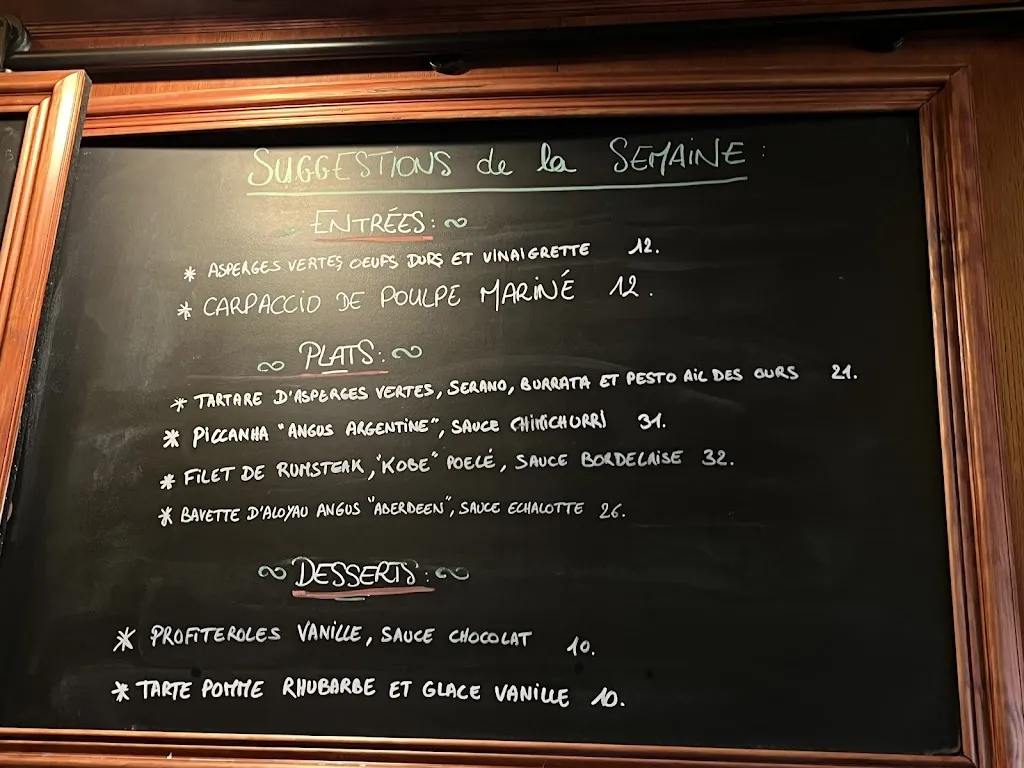 SUGGESTIONS de la SEMAINE :
ENTRÉES :
* ASPERGES VERTES, OEUFS DURS ET VINAIGRETTE 12.
* CARPACCIO DE POULPE MARINÉ 12.
PLATS :
* TARTARE D'ASPERGES VERTES, SERANO, BURRATA ET PESTO AIL DES OURS 21.
* PICCANHA "ANGUS ARGENTINE", SAUCE CHIMICHURRI 31.
* FILET DE RUMSTEAK, "KOBE" POELÉ, SAUCE BORDELAISE 32.
* BAVETTE D'ALOYAU ANGUS "ABERDEEN", SAUCE ECHALOTTE 26.
DESSERTS :
* PROFITEROLES VANILLE, SAUCE CHOCOLAT 10.
* TARTE POMME RHUBARBE ET GLACE VANILLE 10.